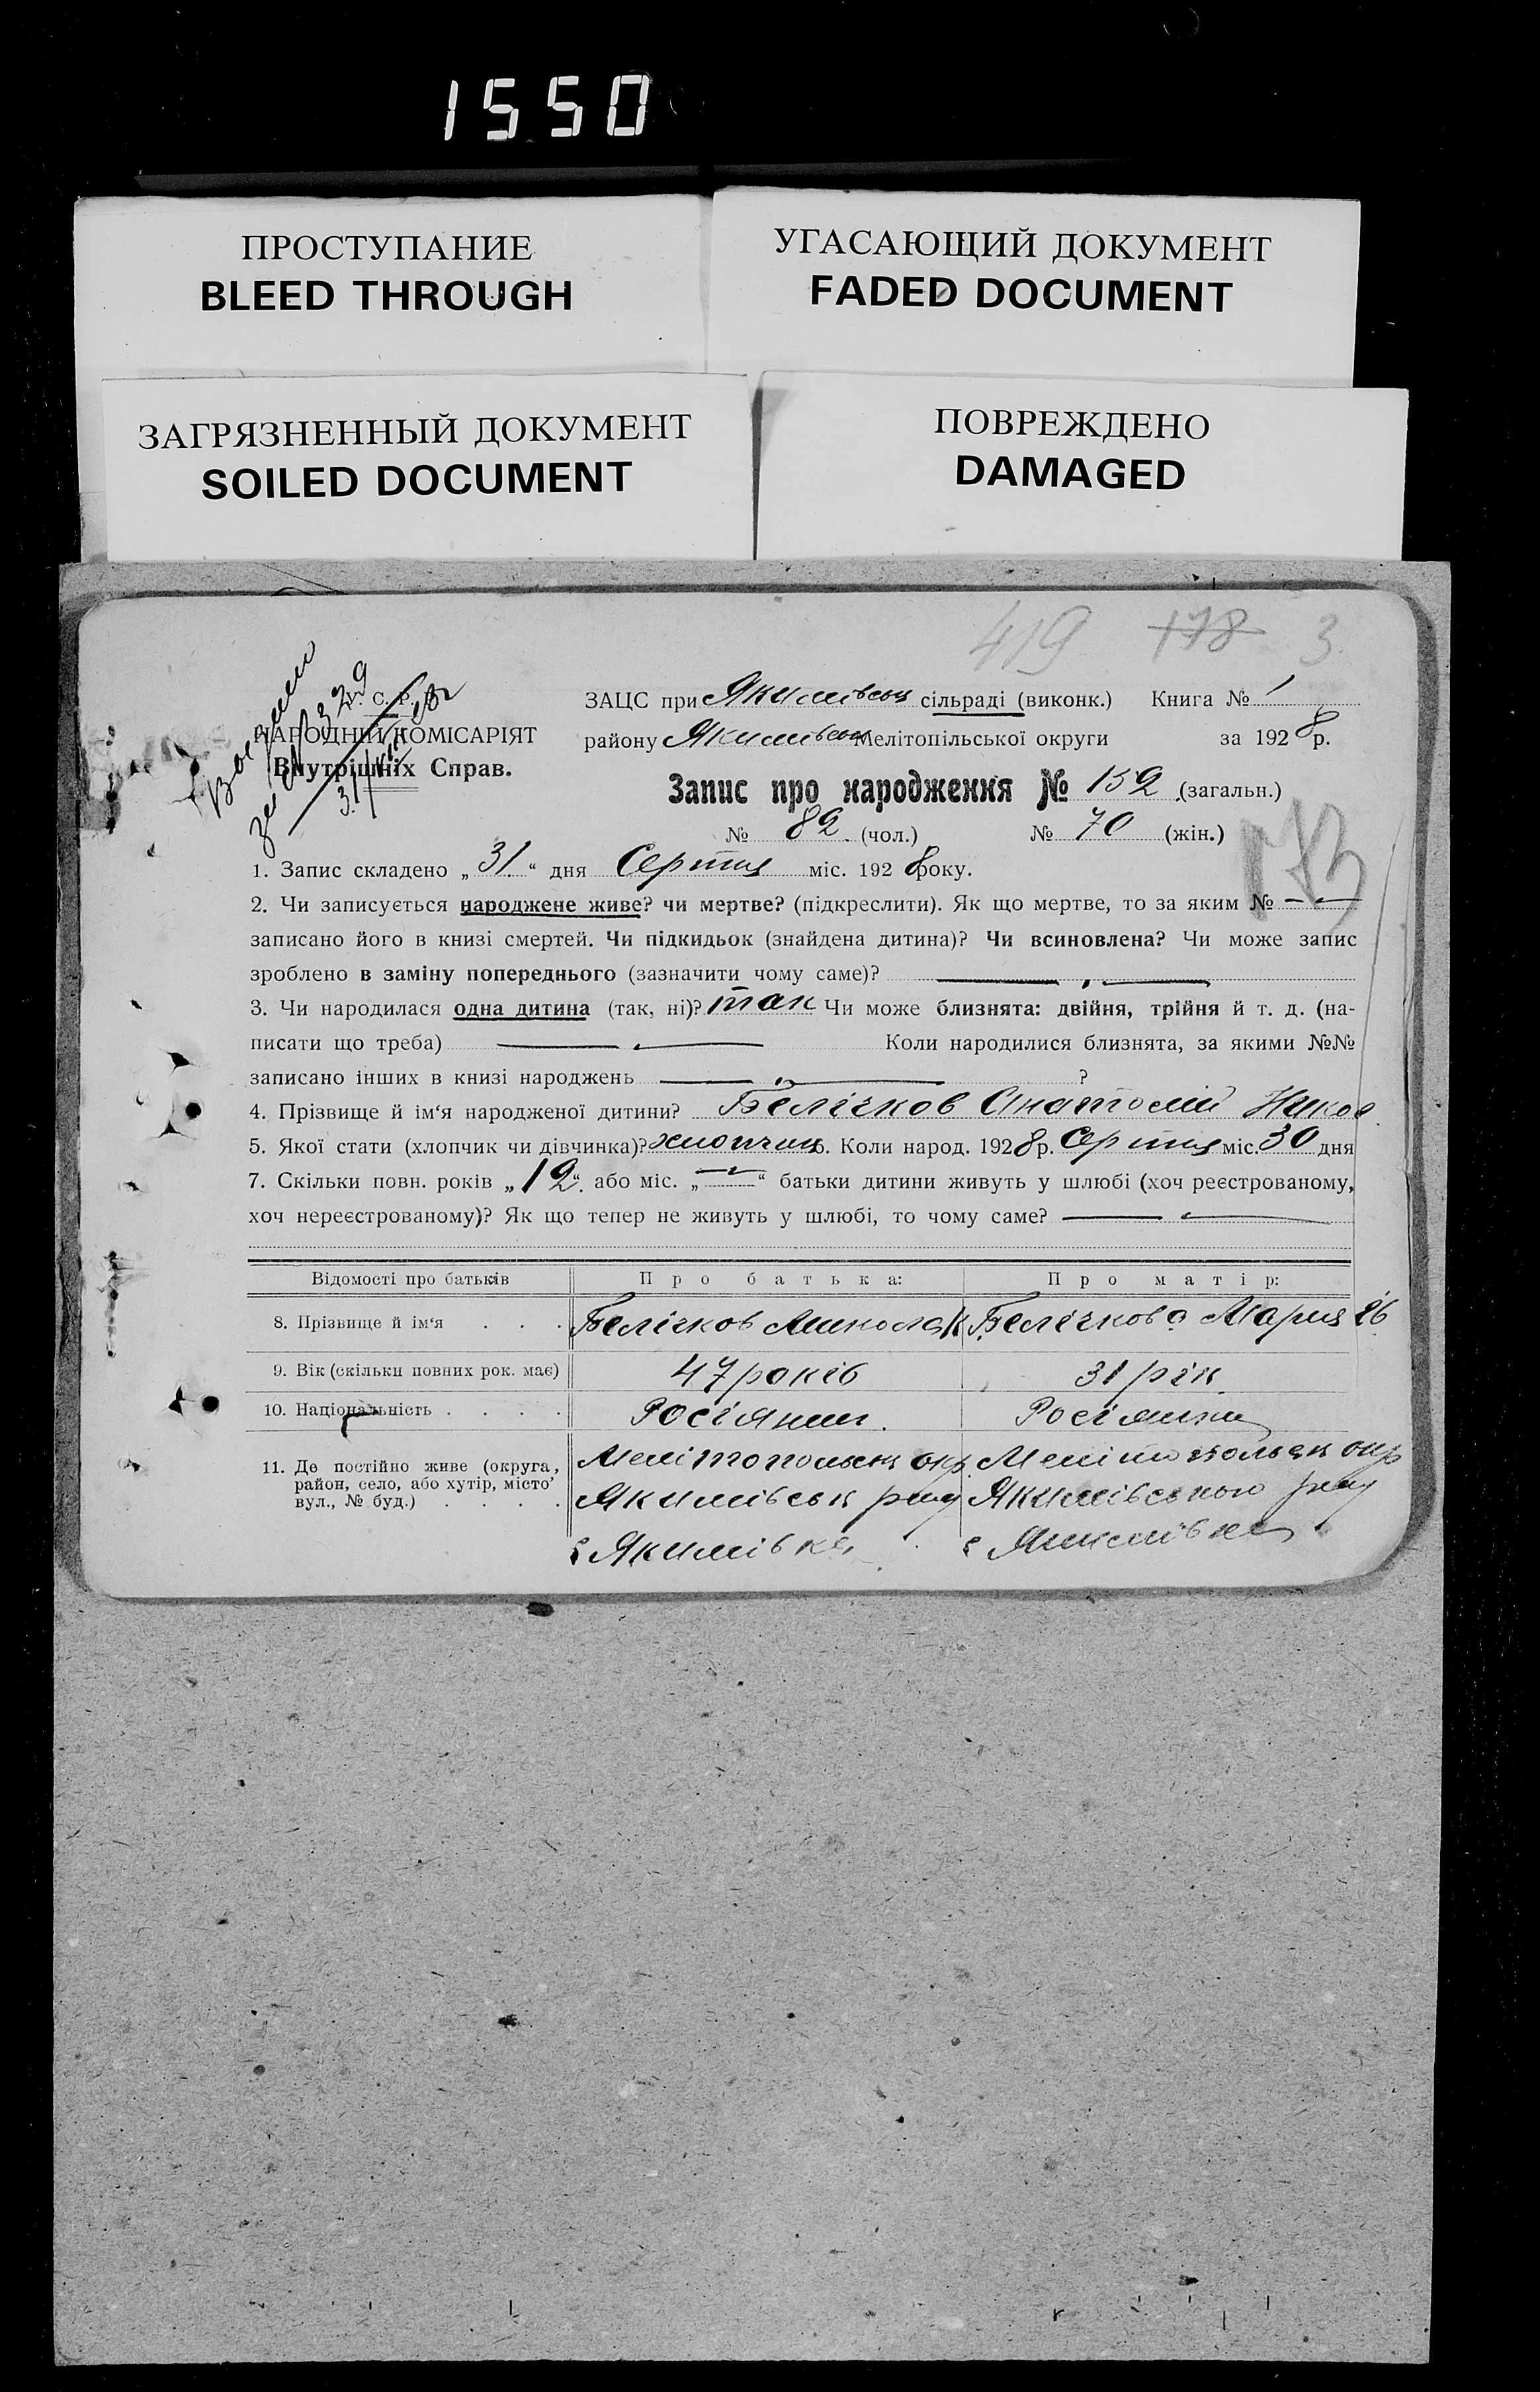 1550
ПРОСТУПАНИЕ
BLEED THROUGH
УГАСАЮЩИЙ ДОКУМЕНТ
FADED DOCUMENT
ЗАГРЯЗНЕННЫЙ ДОКУМЕНТ
SOILED DOCUMENT
ПОВРЕЖДЕНО
DAMAGED
419 178 3
У. С. Р. Р.
НАРОДНИЙ КОМІСАРІЯТ
Внутрішніх Справ.
329
ЗАЦС при Якимівськ сільраді (виконк.) Книга № 1
району Якимівськ Мелітопільської округи за 1928 р.
Запис про народження № 152 (загальн.)
№ 82 (чол.) № 70 (жін.)
173
1. Запис складено „31“ дня Серпня міс. 1928 року.
2. Чи записується народжене живе? чи мертве? (підкреслити). Як що мертве, то за яким № —
записано його в книзі смертей. Чи підкидьок (знайдена дитина)? Чи всиновлена? Чи може запис
зроблено в заміну попереднього (зазначити чому саме)? —
3. Чи народилася одна дитина (так, ні)? так Чи може близнята: двійня, трійня й т. д. (на-
писати що треба) — Коли народилися близнята, за якими №№
записано інших в книзі народжень — ?
4. Прізвище й ім‘я народженої дитини? Белічков Анатолій Никол
5. Якої стати (хлопчик чи дівчинка)? хлопчик 6. Коли народ. 1928 р. Серпня міс. 30 дня
7. Скільки повн. років „12“ або міс. „—“ батьки дитини живуть у шлюбі (хоч реєстрованому,
хоч нереєстрованому)? Як що тепер не живуть у шлюбі, то чому саме? —
Відомості про батьків Про батька: Про матір:
8. Прізвище й ім‘я . . . Белічков Микола Белічкова Мария
9. Вік (скільки повних рок. має) 47 років 31 рік
10. Національність . . . . Росіянин. Росіянка
11. Де постійно живе (округа, район, село, або хутір, місто’ вул., № буд.) . . . .
Мелітопольськ окр. Мелітопольськ окр
Якимівськ рай Якимівського рай
с Якимівка с Якимівка